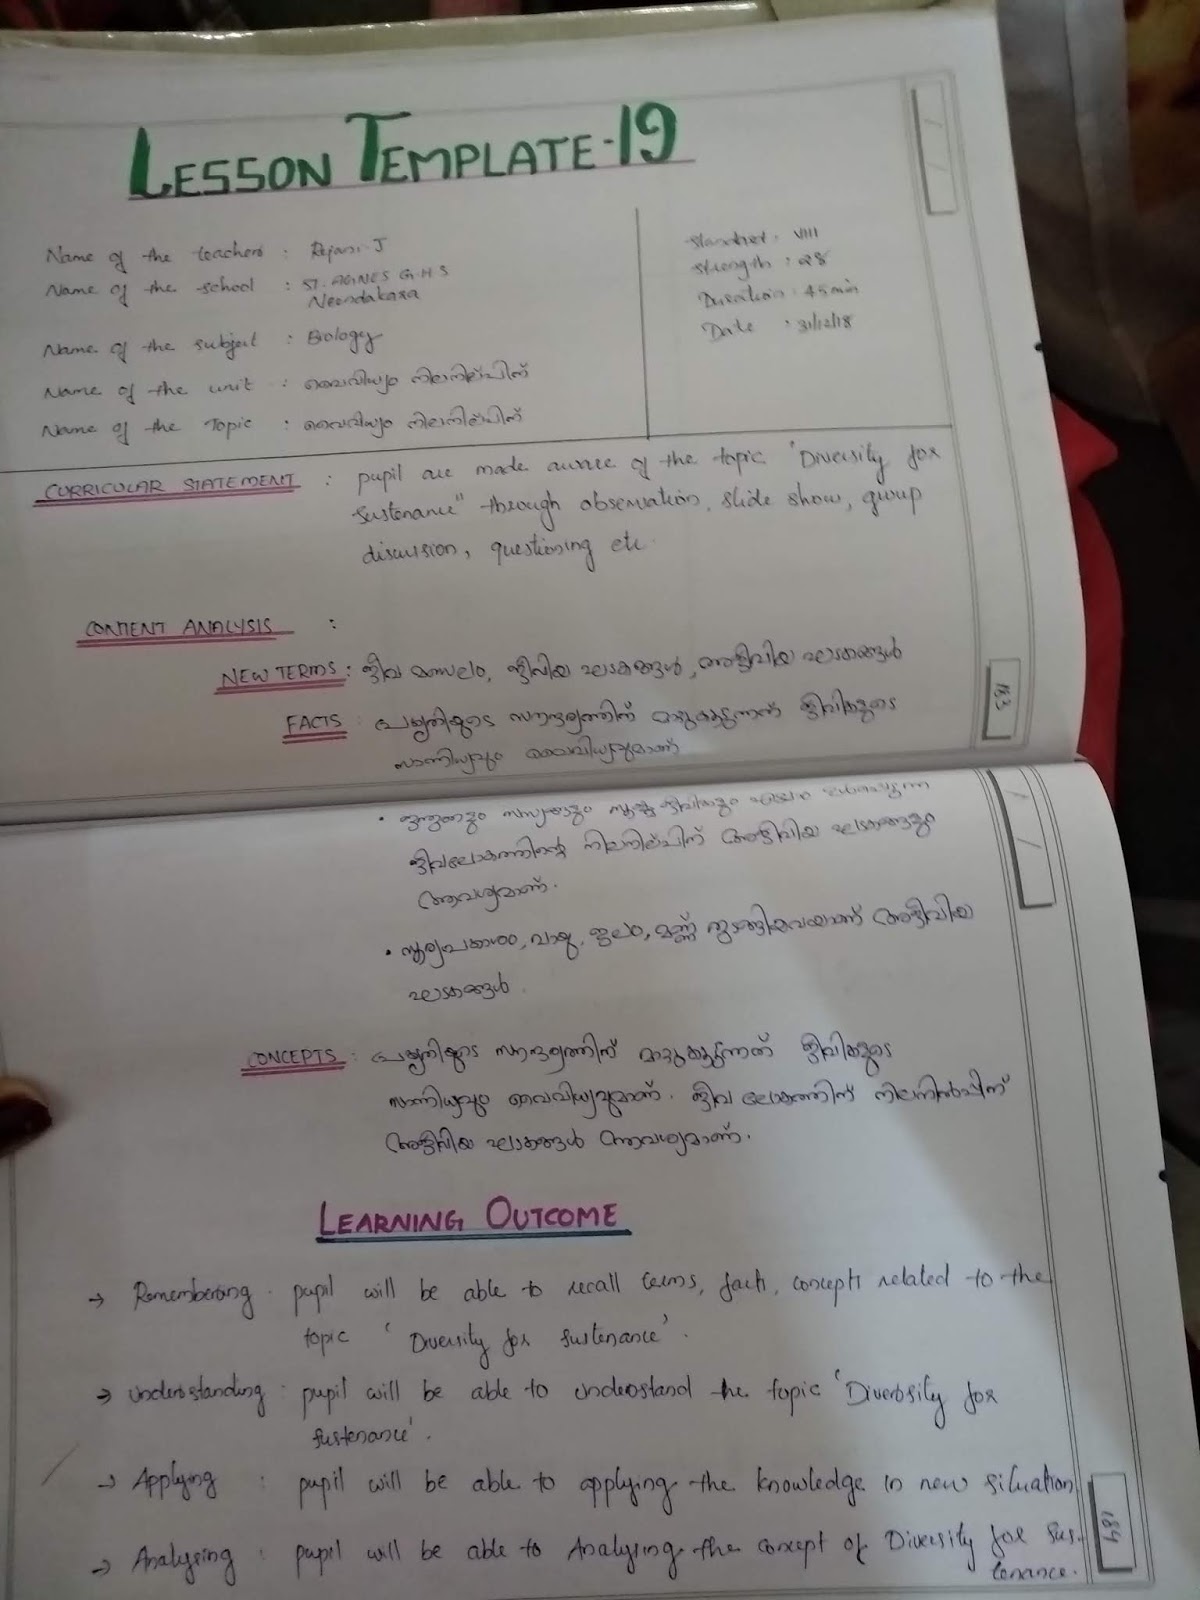 LESSON TEMPLATE-19
Name of the teachers : Rejani-J
Name of the school : ST. AGNES G.H.S
Neendakara
Name of the subject : Biology
Name of the unit : വൈവിധ്യം നിലനില്പിന്
Name of the Topic : വൈവിധ്യം നിലനില്പിന്
Standard : VIII
Strength : 28
Duration : 45min
Date : 31/12/18
CURRICULAR STATEMENT : pupil are made aware of the topic "Diversity for
sustenance" through observation, slide show, group
discussion, questioning etc.
CONTENT ANALYSIS :
NEW TERMS : ജീവ മണ്ഡലം, ജീവീയ ഘടകങ്ങൾ, അജീവിയ ഘടകങ്ങൾ
FACTS : പ്രകൃതിയുടെ സൗന്ദര്യത്തിന് മാറ്റുകൂട്ടുന്നത് ജീവികളുടെ
സാന്നിധ്യവും വൈവിധ്യവുമാണ്
183
• ജന്തുക്കളും സസ്യങ്ങളും സൂക്ഷ്മ ജീവികളും എല്ലാം ഉൾപ്പെടുന്ന
ജീവലോകത്തിന്റെ നിലനില്പിന് അജീവിയ ഘടകങ്ങളും
ആവശ്യമാണ്.
• സൂര്യപ്രകാശം, വായു, ജലം, മണ്ണ് തുടങ്ങിയവയാണ് അജീവിയ
ഘടകങ്ങൾ.
CONCEPTS : പ്രകൃതിയുടെ സൗന്ദര്യത്തിന് മാറ്റുകൂട്ടുന്നത് ജീവികളുടെ
സാന്നിധ്യവും വൈവിധ്യവുമാണ്. ജീവ ലോകത്തിന് നിലനിൽപ്പിന്
അജീവിയ ഘടകങ്ങൾ ആവശ്യമാണ്.
LEARNING OUTCOME
→ Remembering : pupil will be able to recall terms, facts, concepts related to the
topic ' Diversity for sustenance'.
→ Understanding : pupil will be able to understand the topic 'Diversity for
sustenance'.
→ Applying : pupil will be able to applying the knowledge in new situation
→ Analysing : pupil will be able to Analysing the concept of Diversity for sus-
tenance.
184